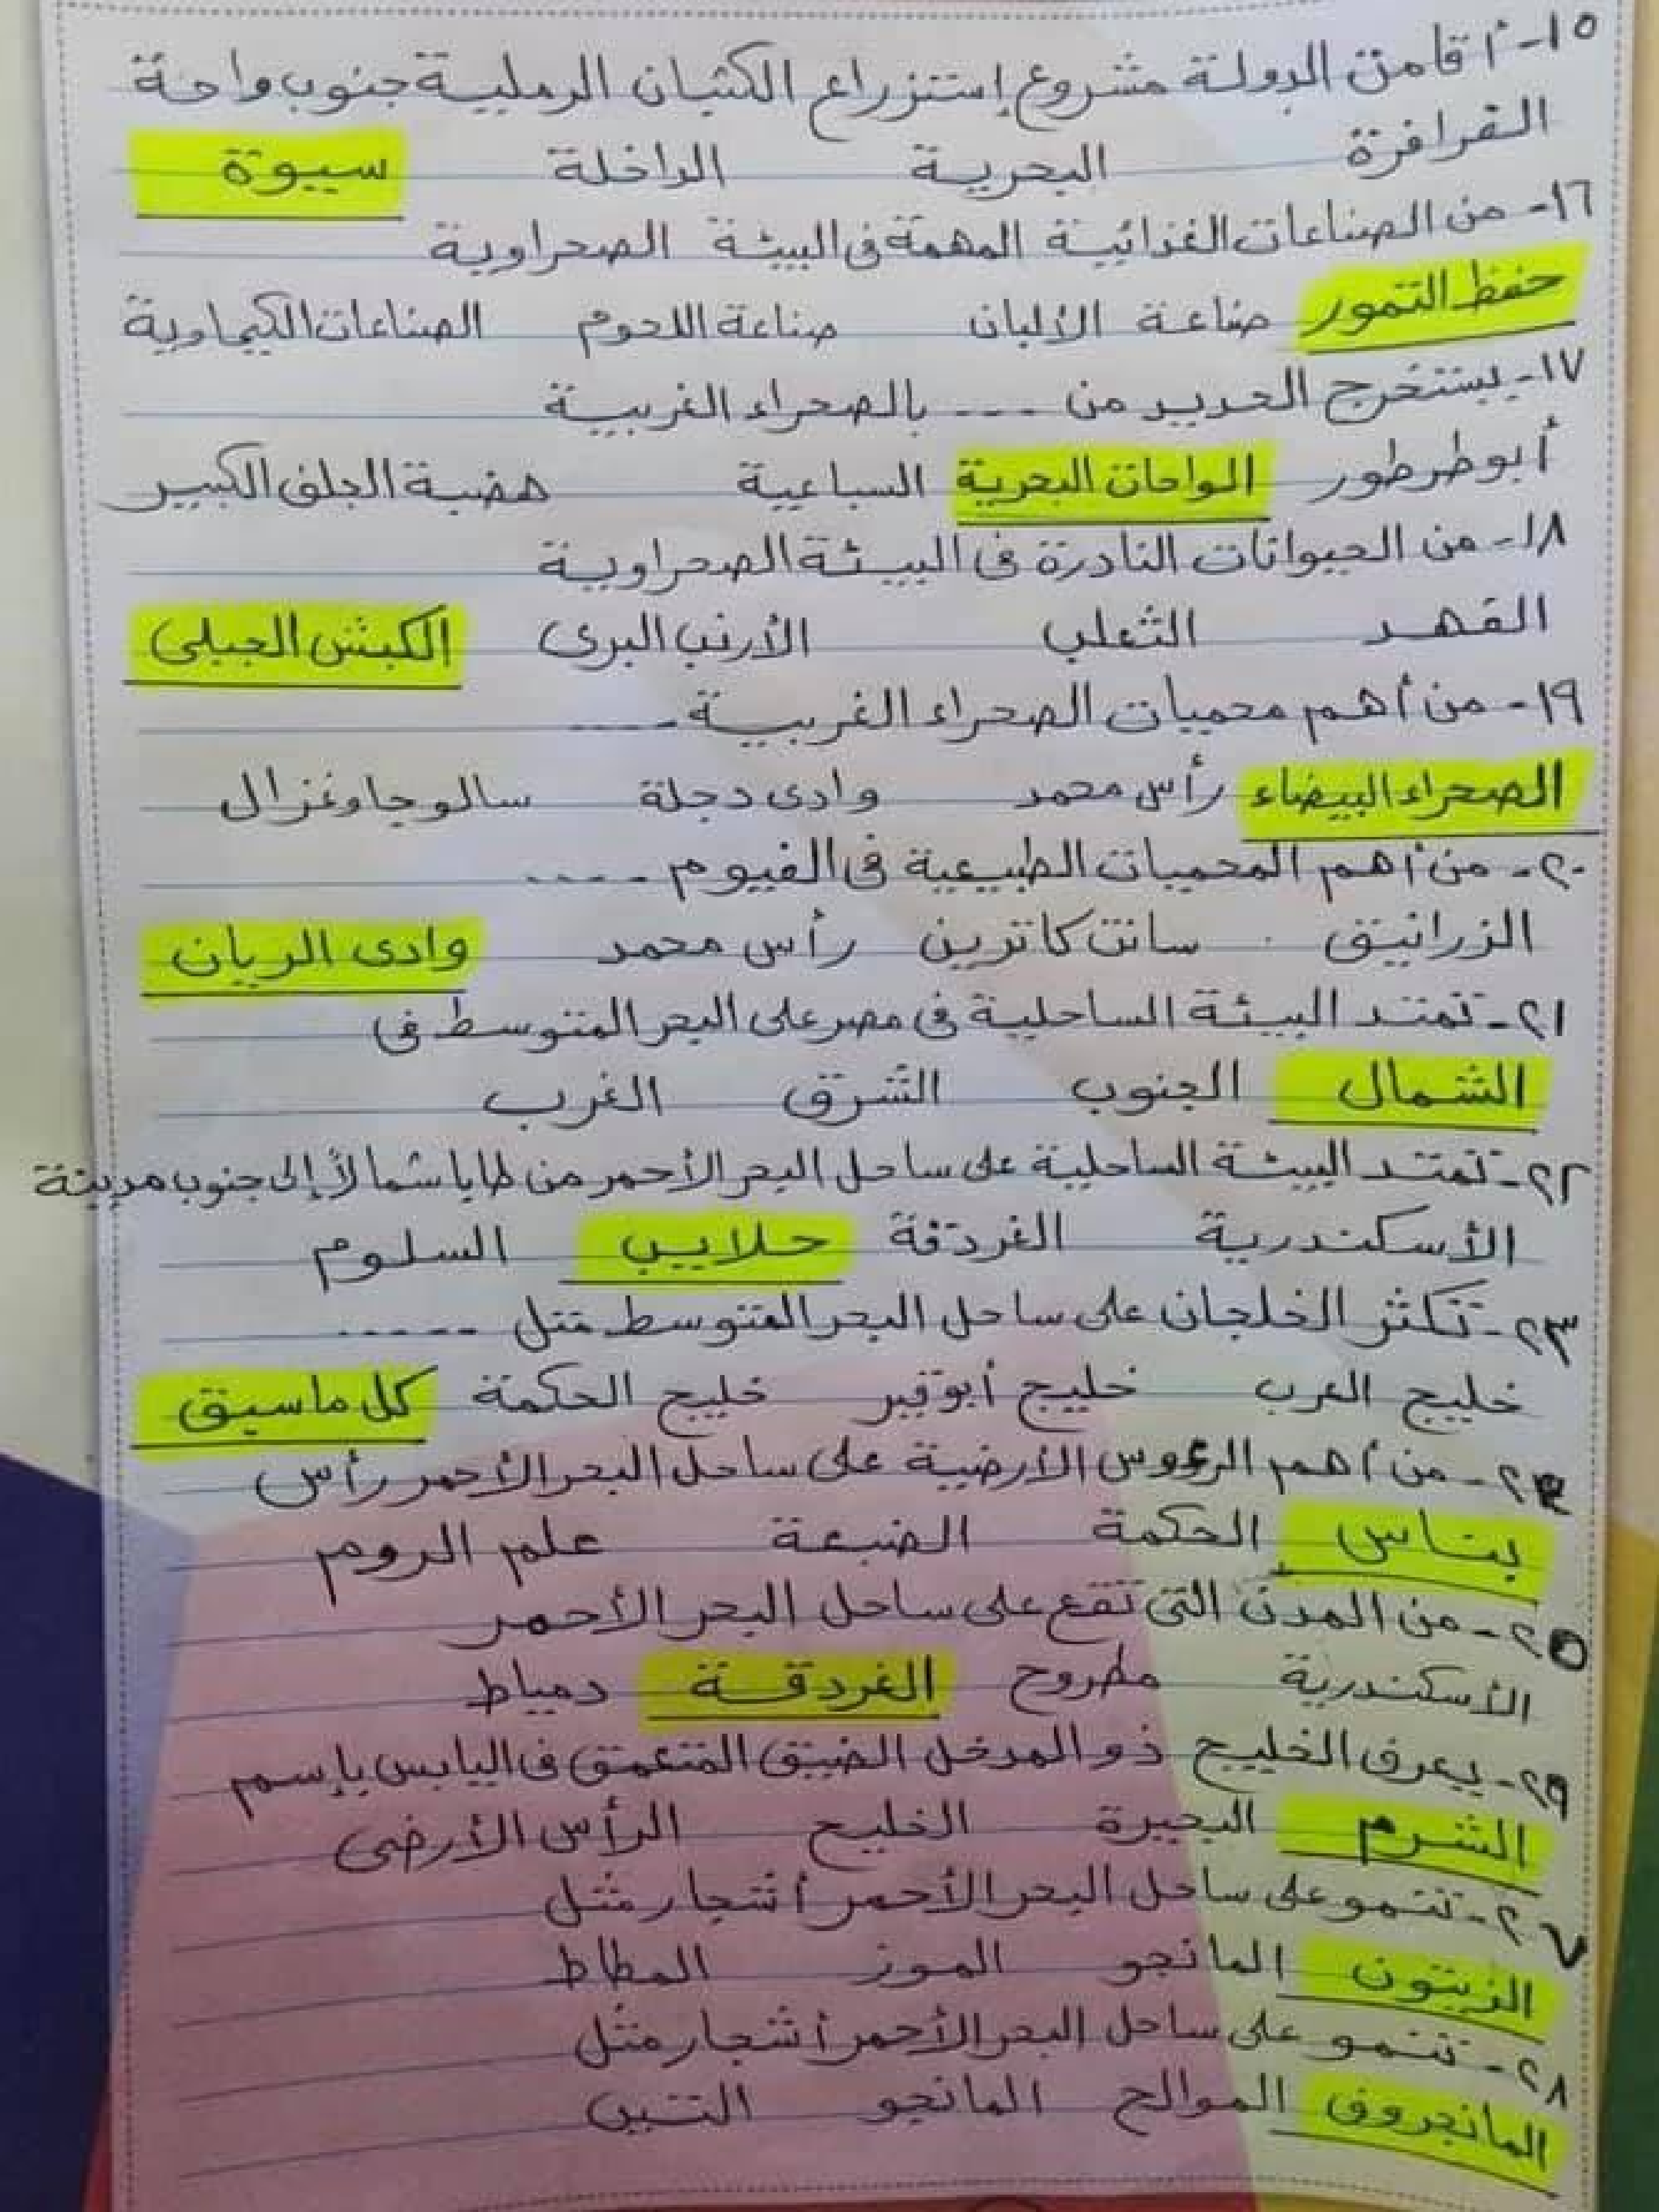 ١٥- أقامت الدولة مشروع إستزراع الكثبان الرملية جنوب واحة
الفرافرة البحرية الداخلة سيوة
١٦- من الصناعات الغذائية المهمة فى البيئة الصحراوية
حفظ التمور صناعة الألبان صناعة اللحوم الصناعات الكيماوية
١٧- يستخرج الحديد من .... بالصحراء الغربية
أبو طرطور الواحات البحرية السباعية هضبة الجلف الكبير
١٨- من الحيوانات النادرة فى البيئة الصحراوية
الفهد الثعلب الأرنب البرى الكبش الجبلى
١٩- من أهم محميات الصحراء الغربية .....
الصحراء البيضاء رأس محمد وادى دجلة سالوجا وغزال
٢٠- من أهم المحميات الطبيعية فى الفيوم .....
الزرانيق سانت كاترين رأس محمد وادى الريان
٢١- تمتد البيئة الساحلية فى مصر على البحر المتوسط فى
الشمال الجنوب الشرق الغرب
٢٢- تمتد البيئة الساحلية على ساحل البحر الأحمر من طابا شمالاً إلى جنوب مدينة
الأسكندرية الغردقة حلايب السلوم
٢٣- تكثر الخلجان على ساحل البحر المتوسط مثل .....
خليج العرب خليج أبوقير خليج الحكمة كل ماسبق
٢٤- من أهم الرءوس الأرضية على ساحل البحر الأحمر رأس
بناس الحكمة الضبعة علم الروم
٢٥- من المدن التى تقع على ساحل البحر الأحمر
الأسكندرية مطروح الغردقة دمياط
٢٩- يعرف الخليج ذو المدخل الضيق المتعمق فى اليابس بإسم
الشرم البحيرة الخليج الرأس الأرضى
٢٧- تنمو على ساحل البحر الأحمر أشجار مثل
الزيتون المانجو الموز المطاط
٢٨- تنمو على ساحل البحر الأحمر أشجار مثل
المانجروف الموالح المانجو التين